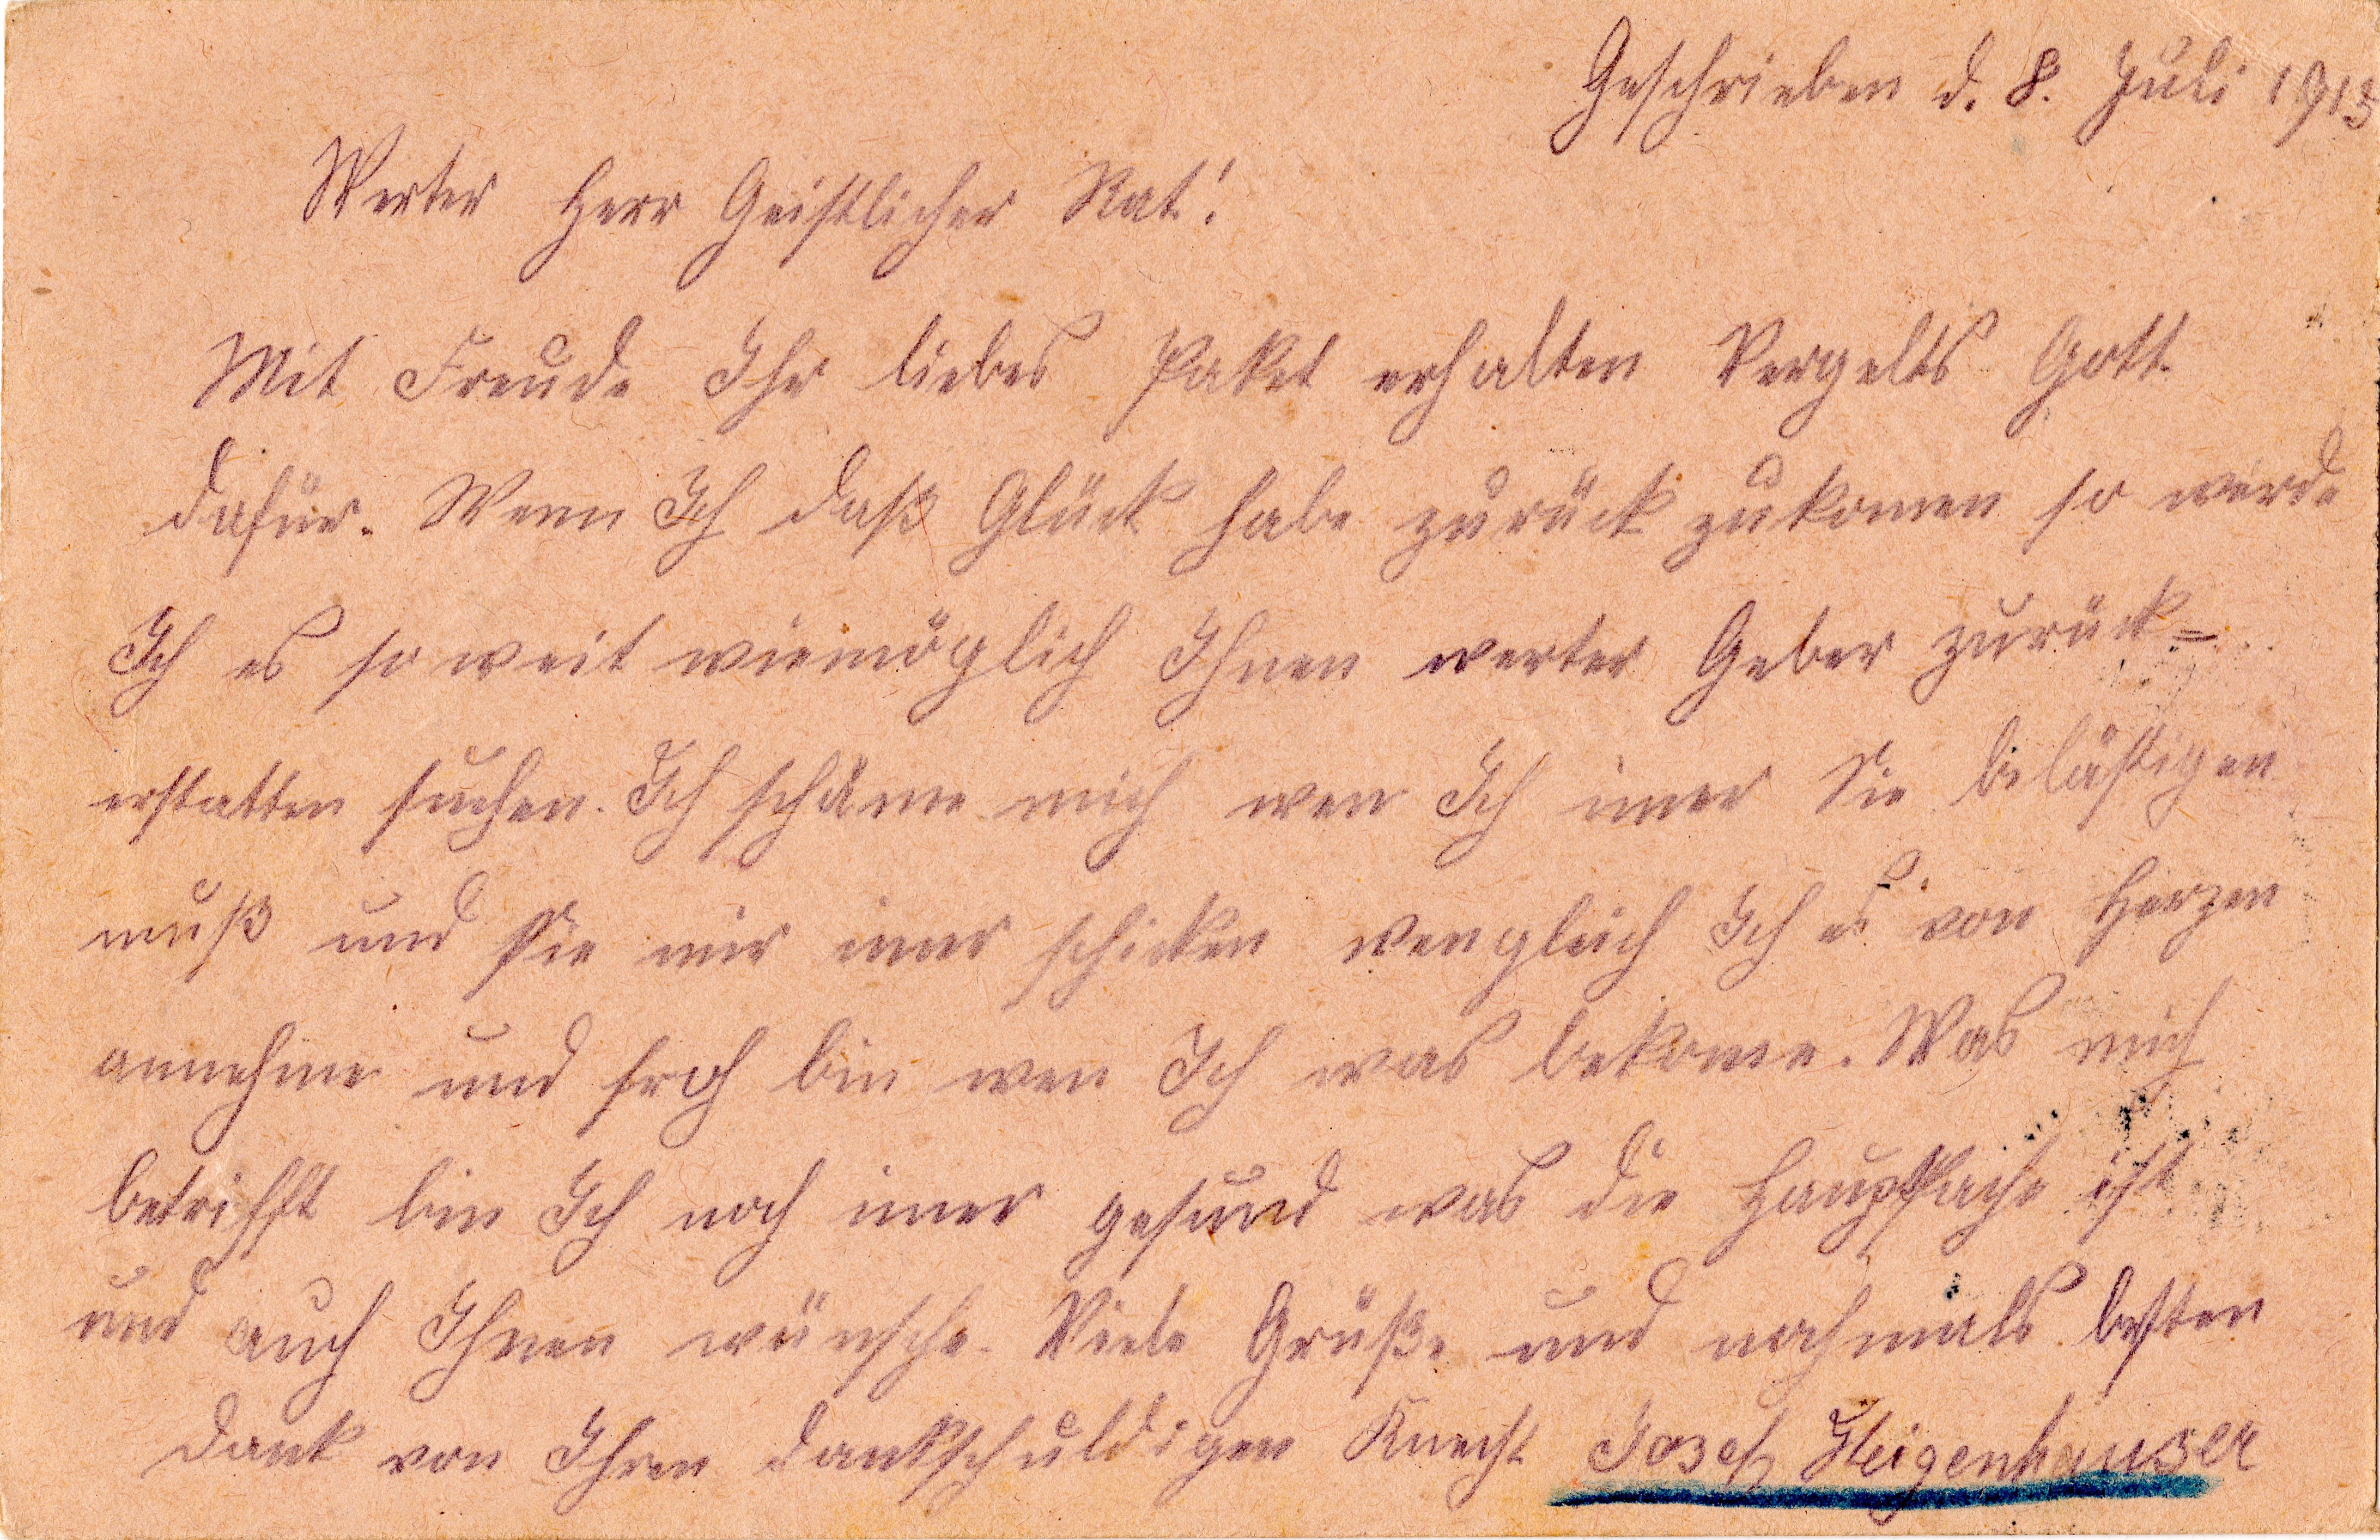 Geschrieben d. 8. Juli 1915
Werter Herr Geistlicher Rat!
Mit Freude Ihr liebes Paket erhalten Vergelts Gott
dafür. Wenn Ich daß Glück habe zurück zukomen so werde
Ich es so weit wiemöglich Ihnen werter Geber zurück=
erstatten suchen. Ich schäme mich wen Ich imer Sie belästigen
muß und Sie mir imer schicken wengleich Ich es von Herzen
annehme und froh bin wen Ich was bekome. Was mich
betrifft bin Ich noch imer gesund was die Hauptsache ist
und auch Ihnen wünsche. Viele Grüße und nochmals besten
Dank von Ihren dankschuldigen Knecht Josef